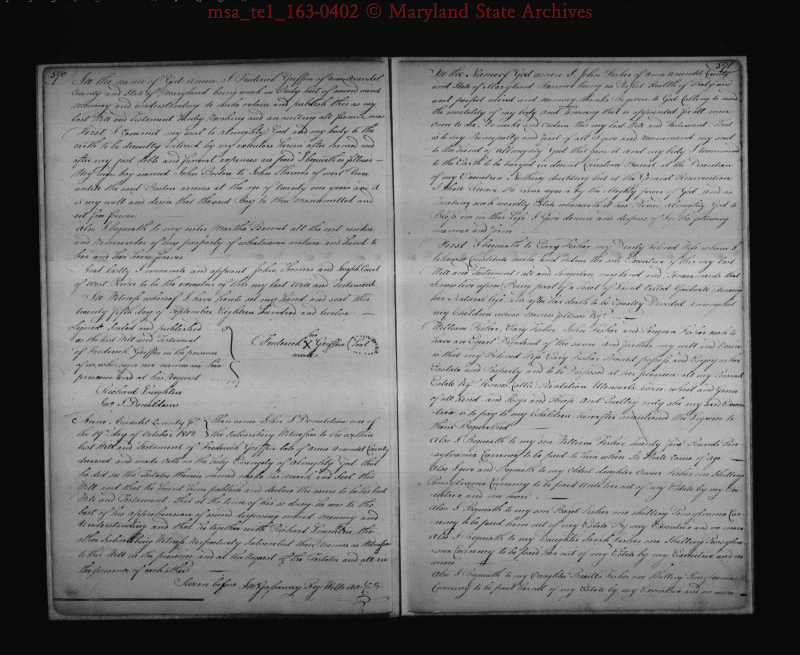 msa_te1_163-0402 © Maryland State Archives
390
In the name of God amen I Frederick Griffin of ann Arundel
County and State of Maryland being weak in Body but of sound mind
memory and understanding do make ordain and publish this as my
last Will and Testament thereby Revoking and annulling all former ones
First I commit my soul to Almighty God and my body to the
earth to be decently interred by my executors herein after named and
after my just debts and funeral expenses are paid I bequeath as follows
My man boy named John Paston to John Thomas of west River
untill the said Paston arrives at the age of twenty one years and it
is my will and desire that the said Boy be then Manumitted and
set free forever
Also I bequeath to my sister Martha Barnet all the rest residue
and remainder of my property of whatsoever nature and kind to
her and her heirs forever
And lastly I nominate and appoint John Thomas and Joseph Court
of West River to be the executors of this my last Will and Testament
In Witness whereof I have hereto set my hand and seal this
twenty fifth day of September Eighteen hundred and twelve
Signed Sealed and published
as the last Will and Testament
of Frederick Griffin in the presence
of us, who sign our names in his
presence and at his Request
his
Frederick X Griffin Seal
mark
Richard
Jno. I. Donaldson
Anne Arundel County Sct
the 19th day of October 1812
Then came John I Donaldson one of
the subscribing Witnesses to the within
last Will and Testament of Frederick Griffin late of ann Arundel County
deceased and made Oath on the Holy Evangely of Almighty God that
he did see the Testator therein named make his mark and Seal this
Will and that he heard him publish and declare the same to be his last
Will and Testament, that at the time of his so doing he was to the
best of his apprehension of sound disposing mind Memory and
Understanding and that he together with Richard the
other Subscribing Witness Respectively Subscribed their Names as Witnesses
to this Will in the presence and at the Request of the Testator and all in
the presence of each other
Sworn before Jno Gassaway Reg Wills AA Cty
391
In the Name of God amen I John Fisher of ann Arundel County
and State of Maryland Farmer being in Perfect Health of Body and
and perfect mind and memory thanks be given to God Calling to mind
the mortality of my body and knowing that it is appointed for all men
once to die, Do make and ordain this my last Will and Testament That
is to say Principally and first of all I give and Recommend my soul
to the hand of Almighty God that gave it and my body I recommend
to the Earth to be buryed in decent Christian Burial at the Discretion
of my Executrix Nothing doubting but at the General Resurrection
I Shall Receive the same again by the Mighty power of God and as
touching such worldly Estate wherewith it has Pleased Almighty God to
Bless me in this Life I give demise and dispose of in the following
manner and form
First I bequeath to Cary Fisher my Dearly beloved Wife whom I
likewise Constitute make and ordain the sole Executrix of this my last
Will and Testament all and singular my land and Tenements that
I now live upon Being part of a Tract of Land Called during
her Natural life and after her death to be Equally Divided amongst
my Children whose names follows
William Fisher, Cary Fisher John Fisher and Fisher each to
have an Equal Dividend of the same and further my will and Desire
is that my Beloved Wife Cary Fisher Should possess and Enjoy other
Estate and Property and to be Disposed at her pleasure all my Personal
Estate Horses Cattle Plantation Utensials Corn wheat and Grain
of all kind and Hogs and Sheep and Poultry only she my said Execu
trix is to pay to my Children hereafter mentioned the Legacies to
them Bequeathed
Also I Bequeath to my son William Fisher twenty five Pounds Pen
sylvania Currency to be paid to him when he shall Come of age
Also I give and Bequeath to my Oldest daughter Fisher one Shilling
Pennsylvania Currency to be paid unto her out of my Estate by my Ex
ecutrix and no more
Also I Bequeath to my son Fisher one shilling Pensylvania Cur
rency to be paid him out of my Estate by my Executrix and no more
Also I Bequeath to my Daughter Sarah Fisher one Shilling Pensylva
nia Currency to be paid her out of my Estate by my Executrix and no
more
Also I Bequeath to my Daughter Fisher one Shilling Pensylvania
Currency to be paid her out of my Estate by my Executrix and no more